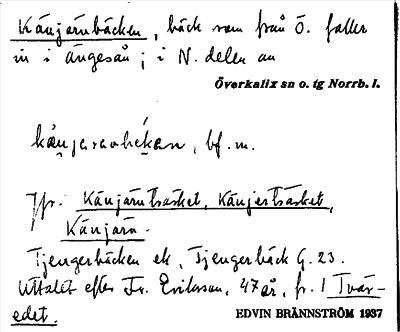 Känjärnbäcken, bäck som från Ö. faller
in i Ängesån; i N. delen av
Överkalix sn o. tg Norrb. l.
bf. m.
Jfr: Känjärnträsket, Känjerträsket,
Känjärn.
Tjengerbäcken ek, Tjengerbäck G. 23.
Uttalet efter Fr. Eriksson, 47 år, fr. 1 Tvär-
edet.
EDVIN BRÄNNSTRÖM 1937